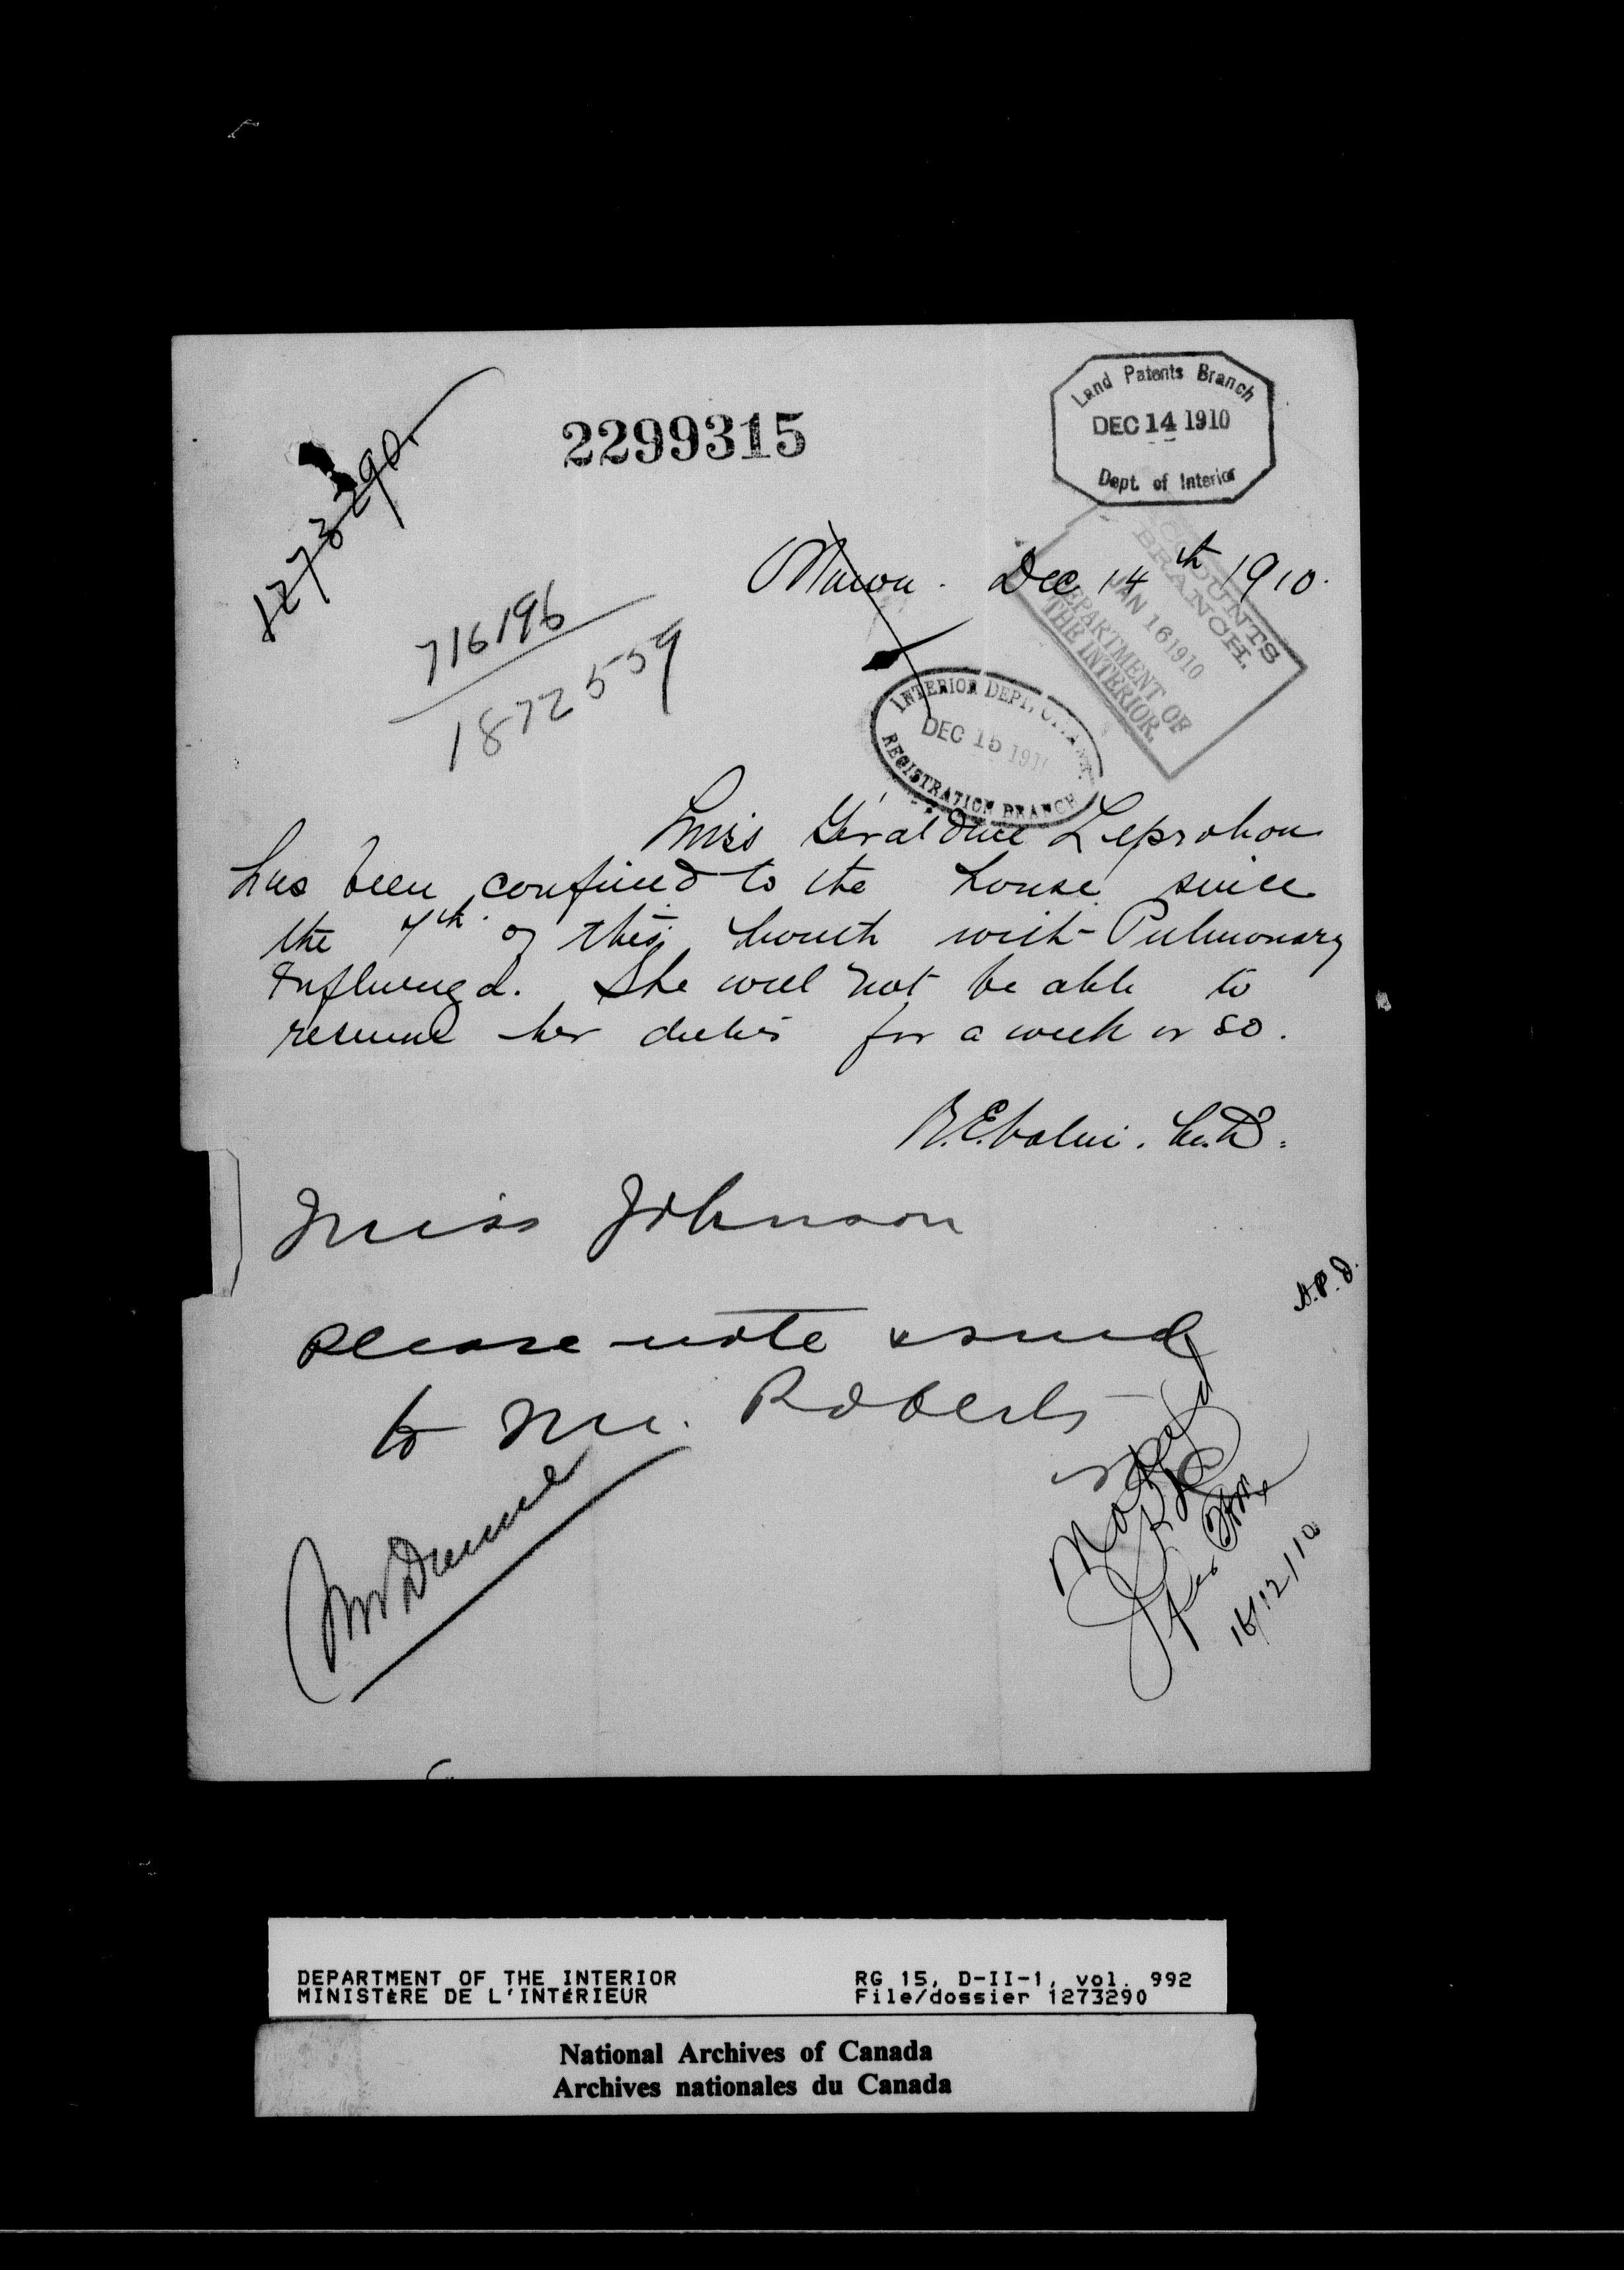 2299315
Land Patents Branch
DEC 14 1910
Dept. of Interior
1273290.
Ottawa. Dec 14th 1910.
ACCOUNTS
BRANCH.
JAN 16 1910
DEPARTMENT OF
THE INTERIOR.
716196
1872559
INTERIOR DEPT,
DEC 15 191
REGISTRATION BRANCH
Miss Géraldine Leprohon
has been confined to the house since
the 7th of this month with Pulmonary
Influenza. She will not be able to
resume her duties for a week or so.
R.E. Valin. M.D.
Miss Johnson
Please note & send
to Mr. Roberts
Mr Dunne
Noted
16/12/10
DEPARTMENT OF THE INTERIOR
MINISTÈRE DE L'INTÉRIEUR
RG 15, D-II-1, vol. 992
File/dossier 1273290
National Archives of Canada
Archives nationales du Canada